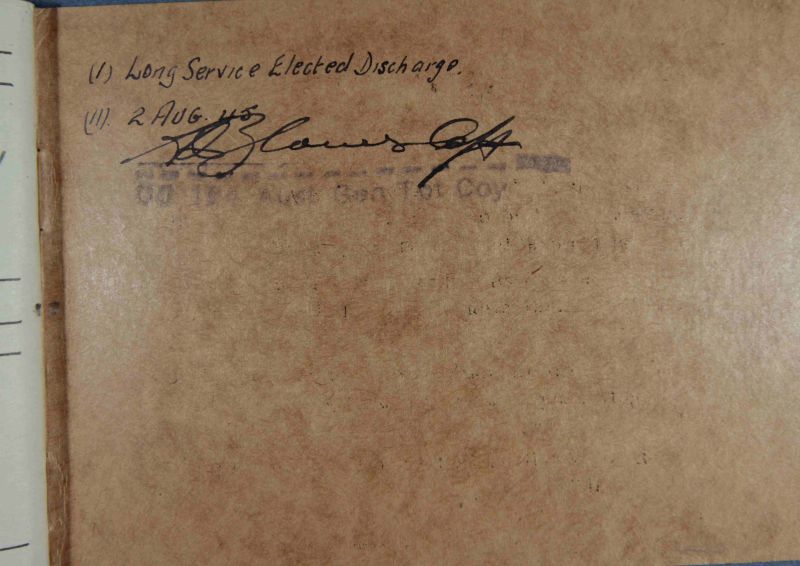 (I) Long Service Elected Discharge.
(II). 2 AUG. 45
Aust Gen Tpt Coy